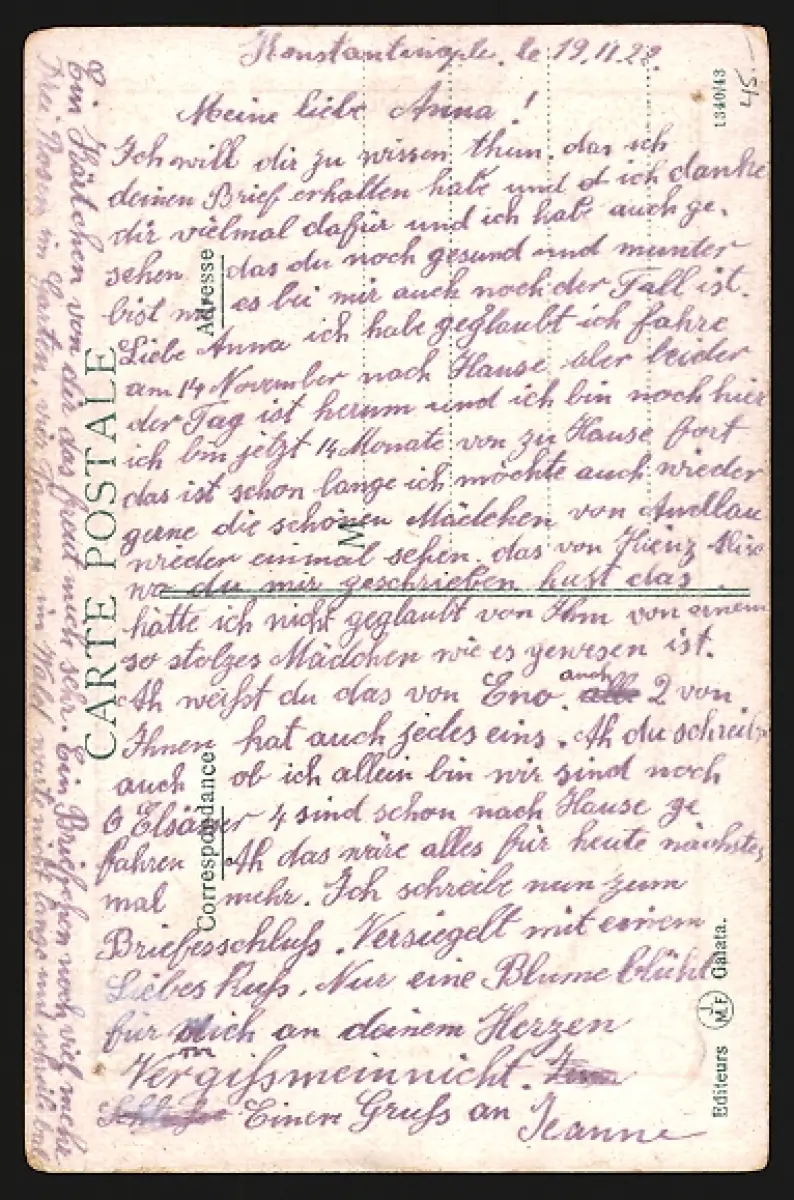 Konstantinople. le 19.11.22.
Meine liebe Anna!
Ich will dir zu wissen thun. das ich
deinen Brief erhalten habe und d ich danke
dir vielmal dafür und ich habe auch ge-
sehen das du noch gesund und munter
bist es bei mir auch noch der Fall ist.
Liebe Anna ich habe geglaubt ich fahre
am 14 November nach Hause aber leider
der Tag ist herum und ich bin noch hier
ich bin jetzt 14 Monate von zu Hause fort
das ist schon lange ich möchte auch wieder
gerne die schönen Mädchen von Andlau
wieder einmal sehen. das von
wo du mir geschrieben hast das
hätte ich nicht geglaubt von Ihm von einem
so stolzes Mädchen wie es gewesen ist.
Ah weißt du das von Eno auch 2 von
Ihnen hat auch jedes eins. Ah du schreibs
auch ob ich allein bin wir sind noch
6 Elsässer 4 sind schon nach Hause ge
fahren Ah das wäre alles für heute nächstes
mal mehr. Ich schreibe nun zum
Briefesschluß. Versiegelt mit einem
Liebes Kuß. Nur eine Blume blüht
für mich an deinem Herzen
Vergißmeinnicht.
Einen Gruß an Jeanne
Ein Kärtchen von dir das freut mich sehr. Ein Briefchen noch viel mehr.
Drei Rosen im Garten, vier Tannen im Wald warte nicht lange und schreib bald
CARTE POSTALE
Adresse
M
Correspondance
1340/43
45-
Editeurs JMF Galata.